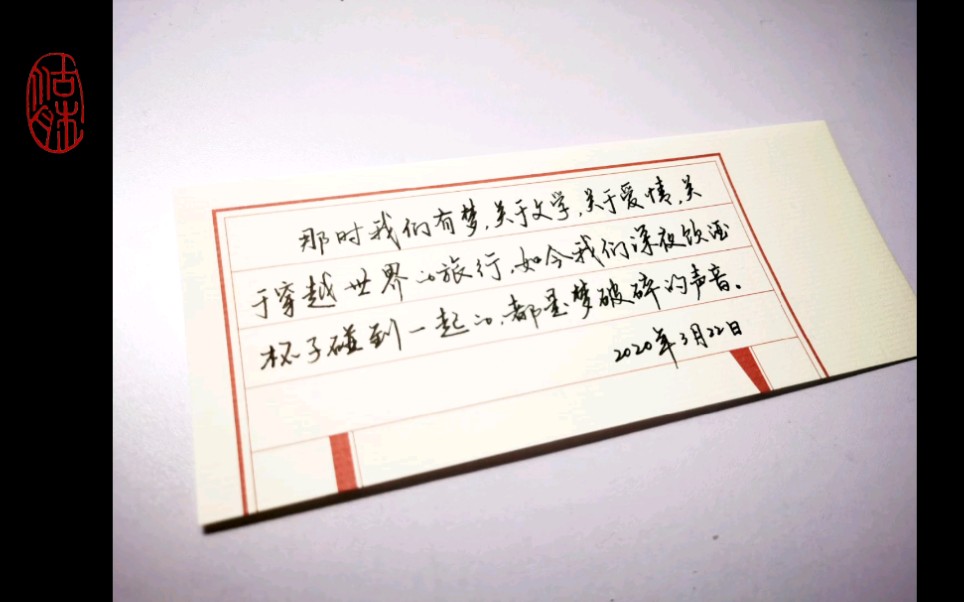 那时我们有梦,关于文学,关于爱情,关
于穿越世界的旅行,如今我们深夜饮酒
杯子碰到一起的,都是梦破碎的声音。
2020年3月22日